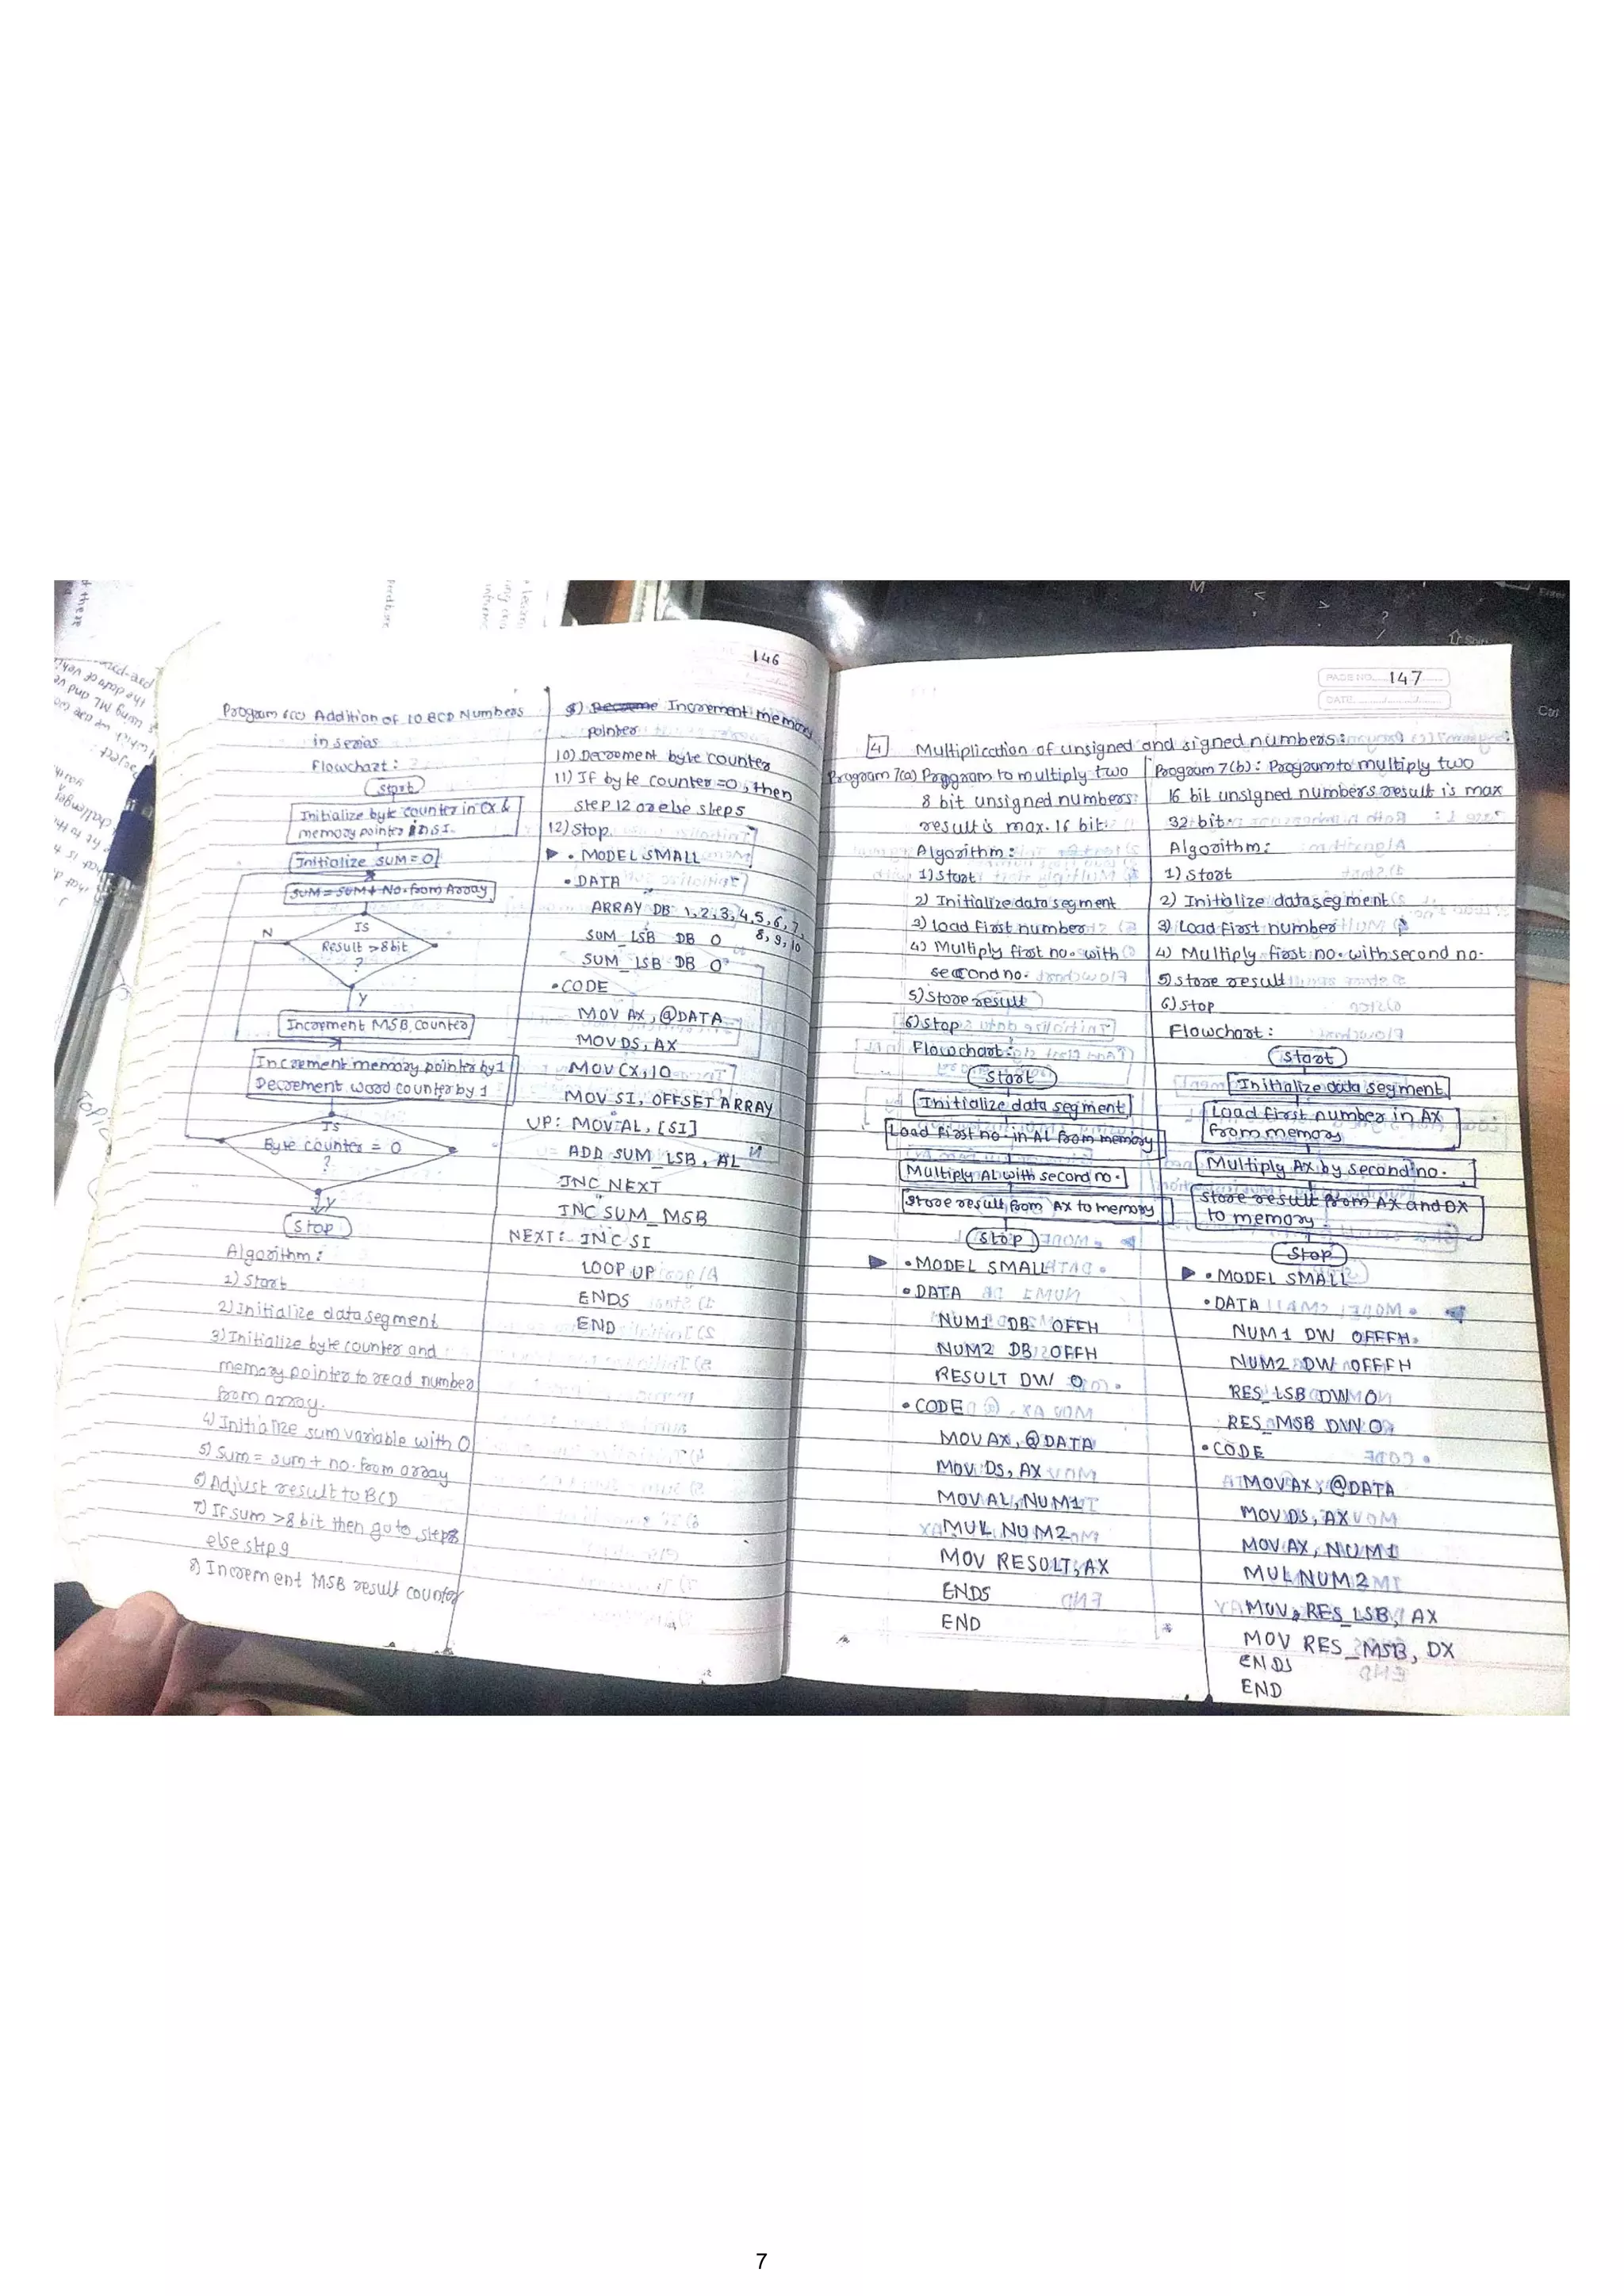 146
Program 6(c) Addition of 10 BCD Numbers
in series
Flowchart :
Start
Initialize byte counter in CX &
memory pointer in SI.
Initialize SUM = 0
SUM = SUM + No. from Array
Is
Result > 8 bit
?
N
Y
Increment MSB counter
Increment memory pointer by 1
Decrement word counter by 1
Is
Byte counter = 0
?
Y
Stop
Algorithm :
1) Start
2) Initialize data segment
3) Initialize byte counter and
memory pointer to read number
from array.
4) Initialize sum variable with 0
5) Sum = sum + no. from array
6) Adjust result to BCD
7) If sum > 8 bit then go to step 8
else step 9
8) Increment MSB result counter
Increment memory
pointer
10) Decrement byte counter
11) If byte counter = 0, then
step 12 or else step 5
12) Stop
. MODEL SMALL
. DATA
ARRAY DB 1,2,3,4,5,6,7,
8,9,10
SUM_LSB DB 0
SUM_LSB DB 0
. CODE
MOV AX, @DATA
MOV DS, AX
MOV CX, 10
MOV SI, OFFSET ARRAY
UP: MOV AL, [SI]
ADD SUM_LSB, AL
JNC NEXT
INC SUM_MSB
NEXT: INC SI
LOOP UP
ENDS
END
PAGE NO. 147
DATE
4 Multiplication of unsigned and signed numbers :
Program 7(a) Program to multiply two
8 bit unsigned numbers
result is max. 16 bit
Algorithm :
1) Start
2) Initialize data segment
3) load first number
4) Multiply first no. with
second no.
5) Store result
6) Stop
Flowchart :
Start
Initialize data segment
Load first no. in AL from memory
Multiply AL with second no.
Store result from AX to memory
Stop
. MODEL SMALL
. DATA
NUM1 DB 0FFH
NUM2 DB 0FFH
RESULT DW 0
. CODE
MOV AX, @DATA
MOV DS, AX
MOV AL, NUM1
MUL NUM2
MOV RESULT, AX
ENDS
END
Program 7(b) : Program to multiply two
16 bit unsigned numbers result is max
32 bit.
Algorithm :
1) Start
2) Initialize data segment
3) Load first number
4) Multiply first no. with second no.
5) store result
6) Stop
Flowchart :
Start
Initialize data segment
Load first number in AX
from memory
Multiply AX by second no.
Store result from AX and DX
to memory
Stop
. MODEL SMALL
. DATA
NUM1 DW 0FFFH
NUM2 DW 0FFFH
RES_LSB DW 0
RES_MSB DW 0
. CODE
MOV AX, @DATA
MOV DS, AX
MOV AX, NUM1
MUL NUM2
MOV RES_LSB, AX
MOV RES_MSB, DX
ENDS
END
7